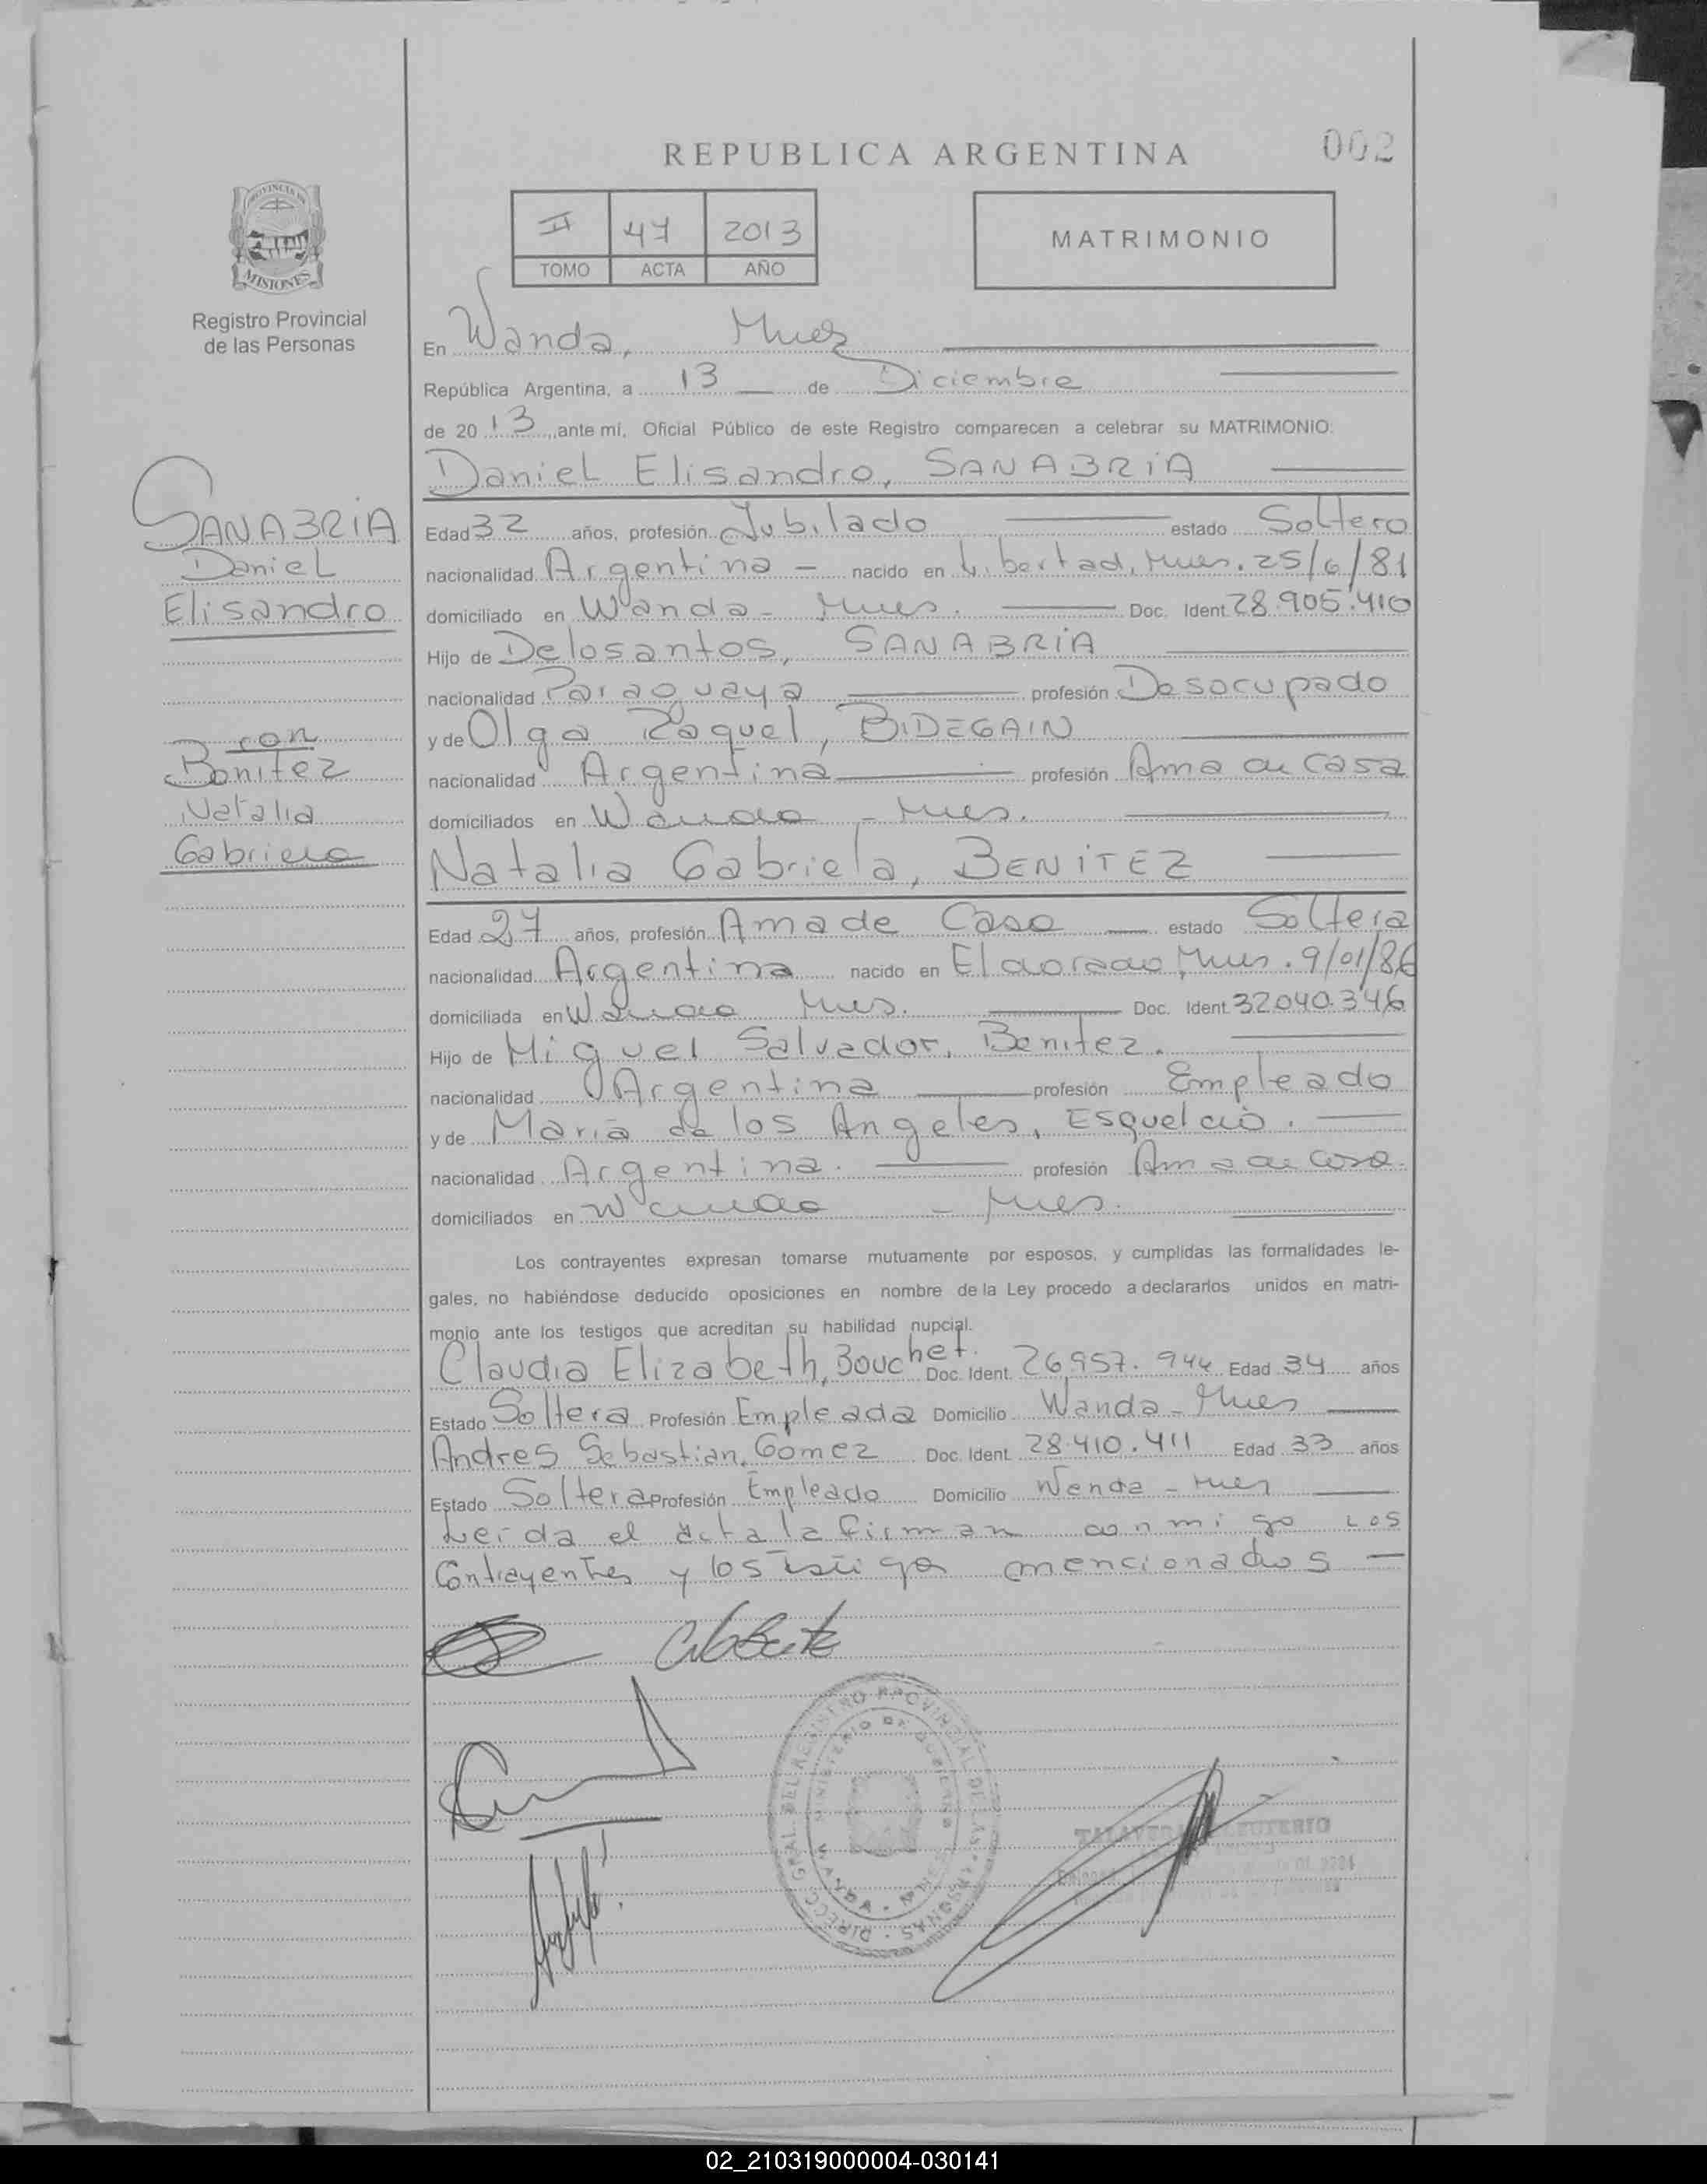 REPUBLICA ARGENTINA
002
II 47 2013
TOMO ACTA AÑO
MATRIMONIO
PROVINCIA DE
MISIONES
Registro Provincial
de las Personas
SANABRIA
Daniel
Elisandro
con
Benitez
Natalia
Gabriela
En Wanda, Mnes
República Argentina, a 13 de Diciembre
de 2013, ante mí, Oficial Público de este Registro comparecen a celebrar su MATRIMONIO:
Daniel Elisandro, SANABRIA
Edad 32 años, profesión Jubilado estado Soltero
nacionalidad Argentina - nacido en Libertad, Mnes. 25/6/81
domiciliado en Wanda - Mnes. Doc. Ident. 28.905.410
Hijo de Delosantos, SANABRIA
nacionalidad Paraguaya profesión Desocupado
y de Olga Raquel, BIDEGAIN
nacionalidad Argentina profesión Ama de Casa
domiciliados en Wanda - Mnes.
Natalia Gabriela, BENITEZ
Edad 27 años, profesión Ama de Casa estado Soltera
nacionalidad Argentina nacido en Eldorado, Mnes. 9/01/86
domiciliada en Wanda Mnes. Doc. Ident. 32.040.346
Hijo de Miguel Salvador, Benitez.
nacionalidad Argentina profesión Empleado
y de Maria de los Angeles, Esquelcio.
nacionalidad Argentina. profesión Ama de Casa.
domiciliados en Wanda - Mnes.
Los contrayentes expresan tomarse mutuamente por esposos, y cumplidas las formalidades le-
gales, no habiéndose deducido oposiciones en nombre de la Ley procedo a declararlos unidos en matri-
monio ante los testigos que acreditan su habilidad nupcial.
Claudia Elizabeth, Bouchet. Doc. Ident. 26.957.944 Edad 34 años
Estado Soltera Profesión Empleada Domicilio Wanda - Mnes
Andres Sebastian, Gomez Doc. Ident. 28.410.411 Edad 33 años
Estado Soltera Profesión Empleado Domicilio Wanda - Mnes
Leida el acta la firman conmigo Los
Contrayentes y los testigos mencionados -
DIRECC. GRAL. DEL REGISTRO PROVINCIAL DE LAS PERSONAS
MINISTERIO DE GOBIERNO
02_210319000004-030141